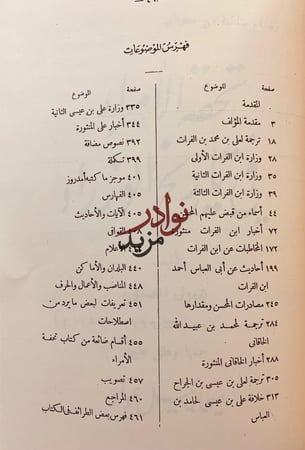 فهرس الموضوعات
صفحة الموضوع
المقدمة
٣ مقدمة المؤلف
١٨ ترجمة لعلى بن محمد بن الفرات
٢٨ وزارة ابن الفرات الأولى
٣٥ وزارة ابن الفرات الثانية
٣٩ وزارة ابن الفرات الثالثة
٤٤ أسماء من قبض عليهم
٧٢ أخبار ابن الفرات منثورة
١٧٢ المخاطبات عن ابن الفرات
١٩٩ أحاديث عن أبى العباس أحمد
ابن الفرات
٢٤٥ مصادرات المحسن ومقدارها
٢٨٤ ترجمة لمحمد بن عبيد الله
الخاقانى
٢٨٨ أخبار الخاقانى المنثورة
٣٠٥ ترجمة لعلى بن عيسى بن الجراح
٣١٣ خلافة على بن عيسى لحامد بن
العباس
صفحة الموضوع
٣٣٥ وزارة على بن عيسى الثانية
٣٤٤ أخبار على المنثورة
٣٩٢ نصوص مضافة
٣٩٩ تكملة
٤٠١ موجز ما كتبه أمدروز
٤٠٥ الفهارس
٤٠٥ الآيات والأحاديث
القوافى
الأعلام
٤٤٠ البلدان والأماكن
٤٤٨ المناصب والأعمال والحرف
٤٥١ تعريفات لبعض ما يرد من
اصطلاحات
٤٥٥ أقسام ضائعة من كتاب تحفة
الأمراء
٤٥٧ تصويب
٤٦٠ المراجع
٤٦١ فهرس بعض الطرائف فى الكتاب
نوادر
مزيد